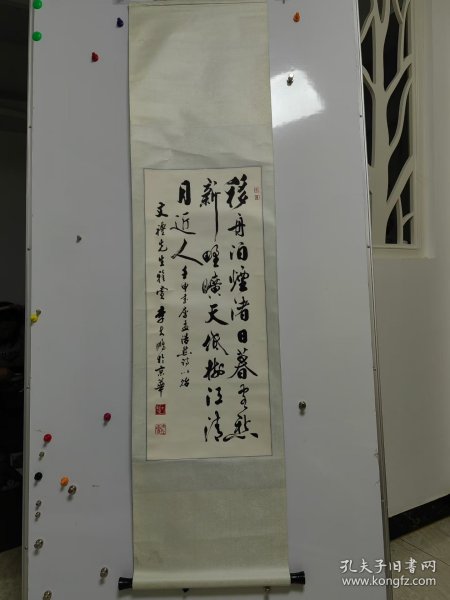 移舟泊煙渚日暮客愁
新野曠天低樹江清
月近人 壬申 孟浩然詩
文禮先生雅賞 李 於京華
孔夫子旧书网
www.kongfz.com